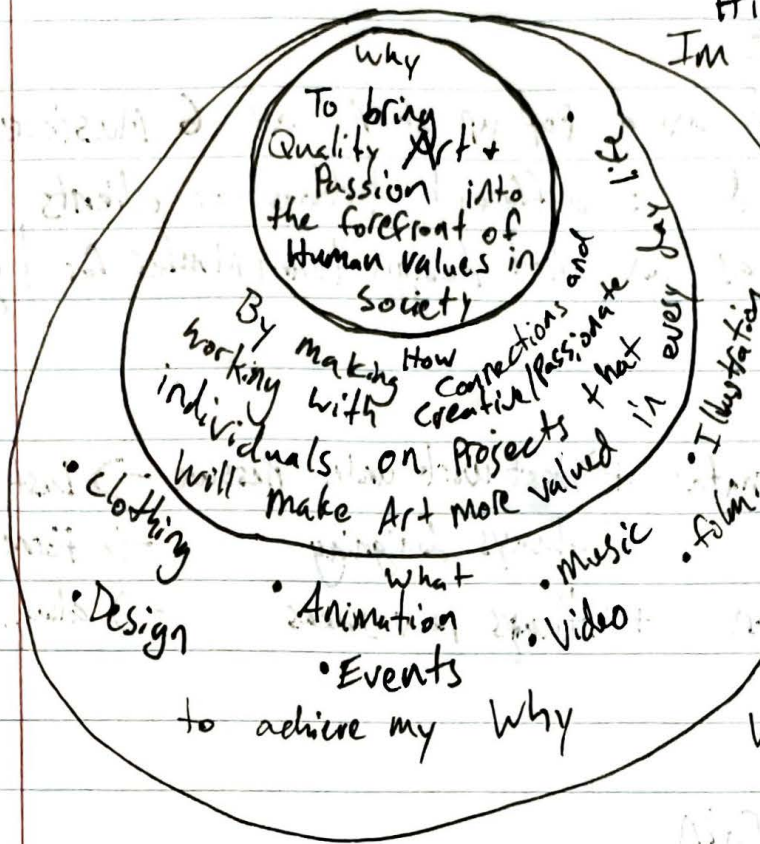 Im
Why
To bring
Quality Art +
Passion into
the forefront of
Human values in
Society
How
By making connections and
working with creative/Passionate
individuals on Projects that
Will make Art more valued in every day life
What
• Clothing
• Design
• Animation
• Events
• Music
• Video
• Illustration
• film
to achieve my Why